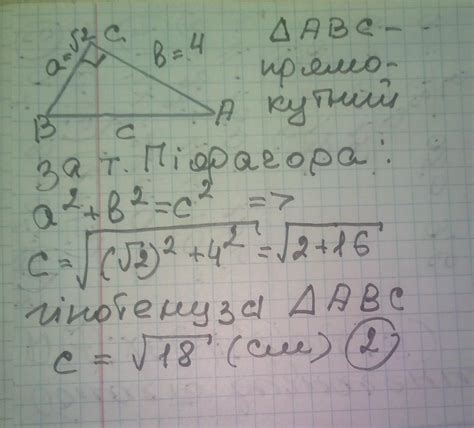 C
a=√2
b=4
B
A
c
ΔABC-
прямо-
кутний
За т. Піфагора:
a²+b²=c² =>
c=√((√2)²+4²)=√(2+16)
гіпотенуза ΔABC
c = √18 (см) 2